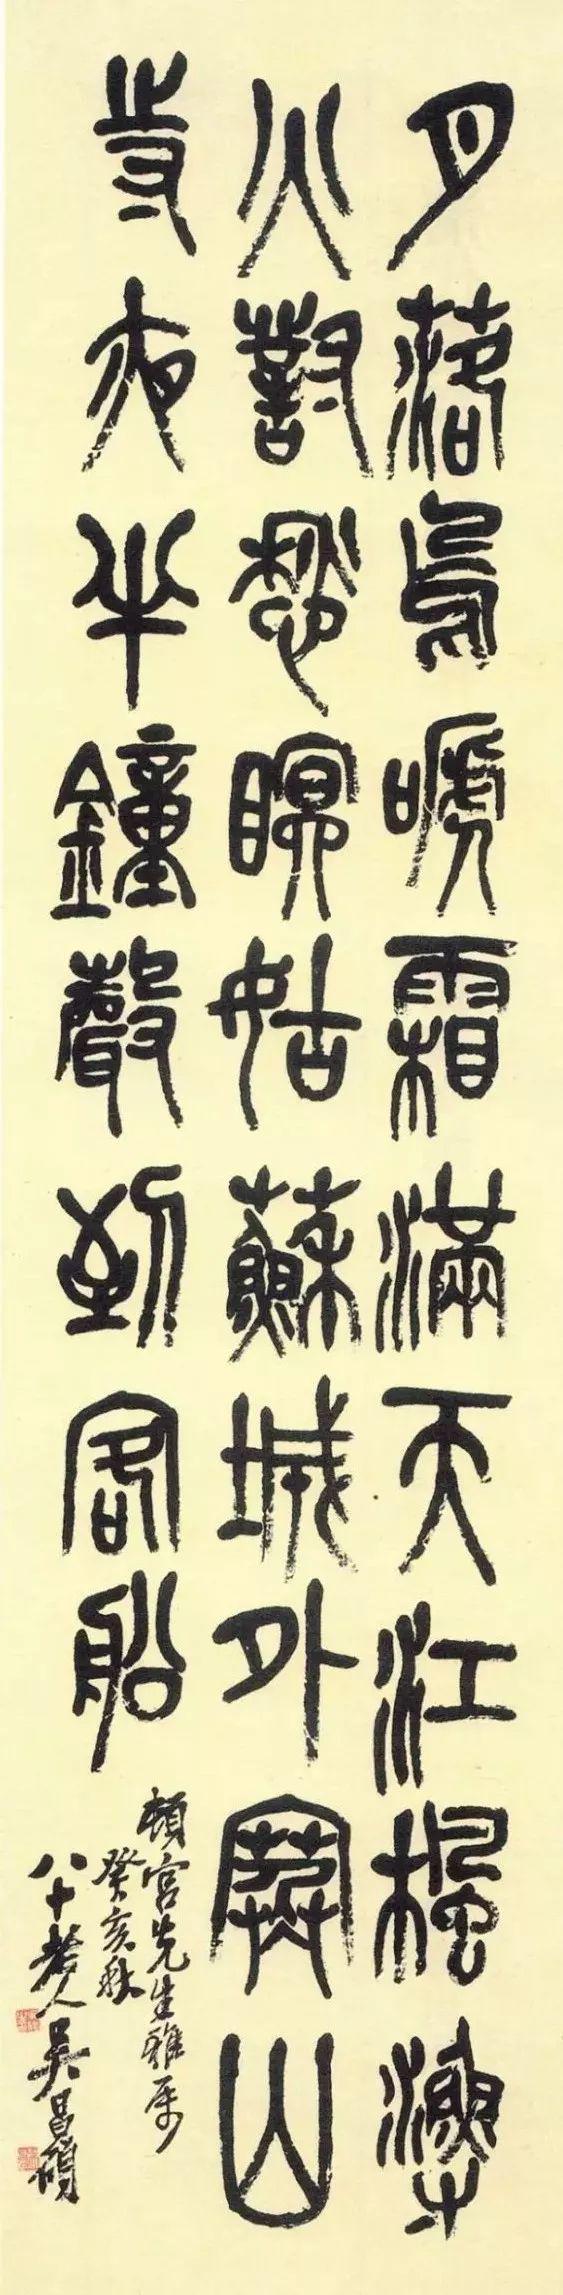 月落烏嗁霜滿天江楓漁
火對愁瞑姑蘇城外寒山
寺夜半鐘聲到客船
頓宮先生雅属
癸亥秋
八十老人吳昌碩